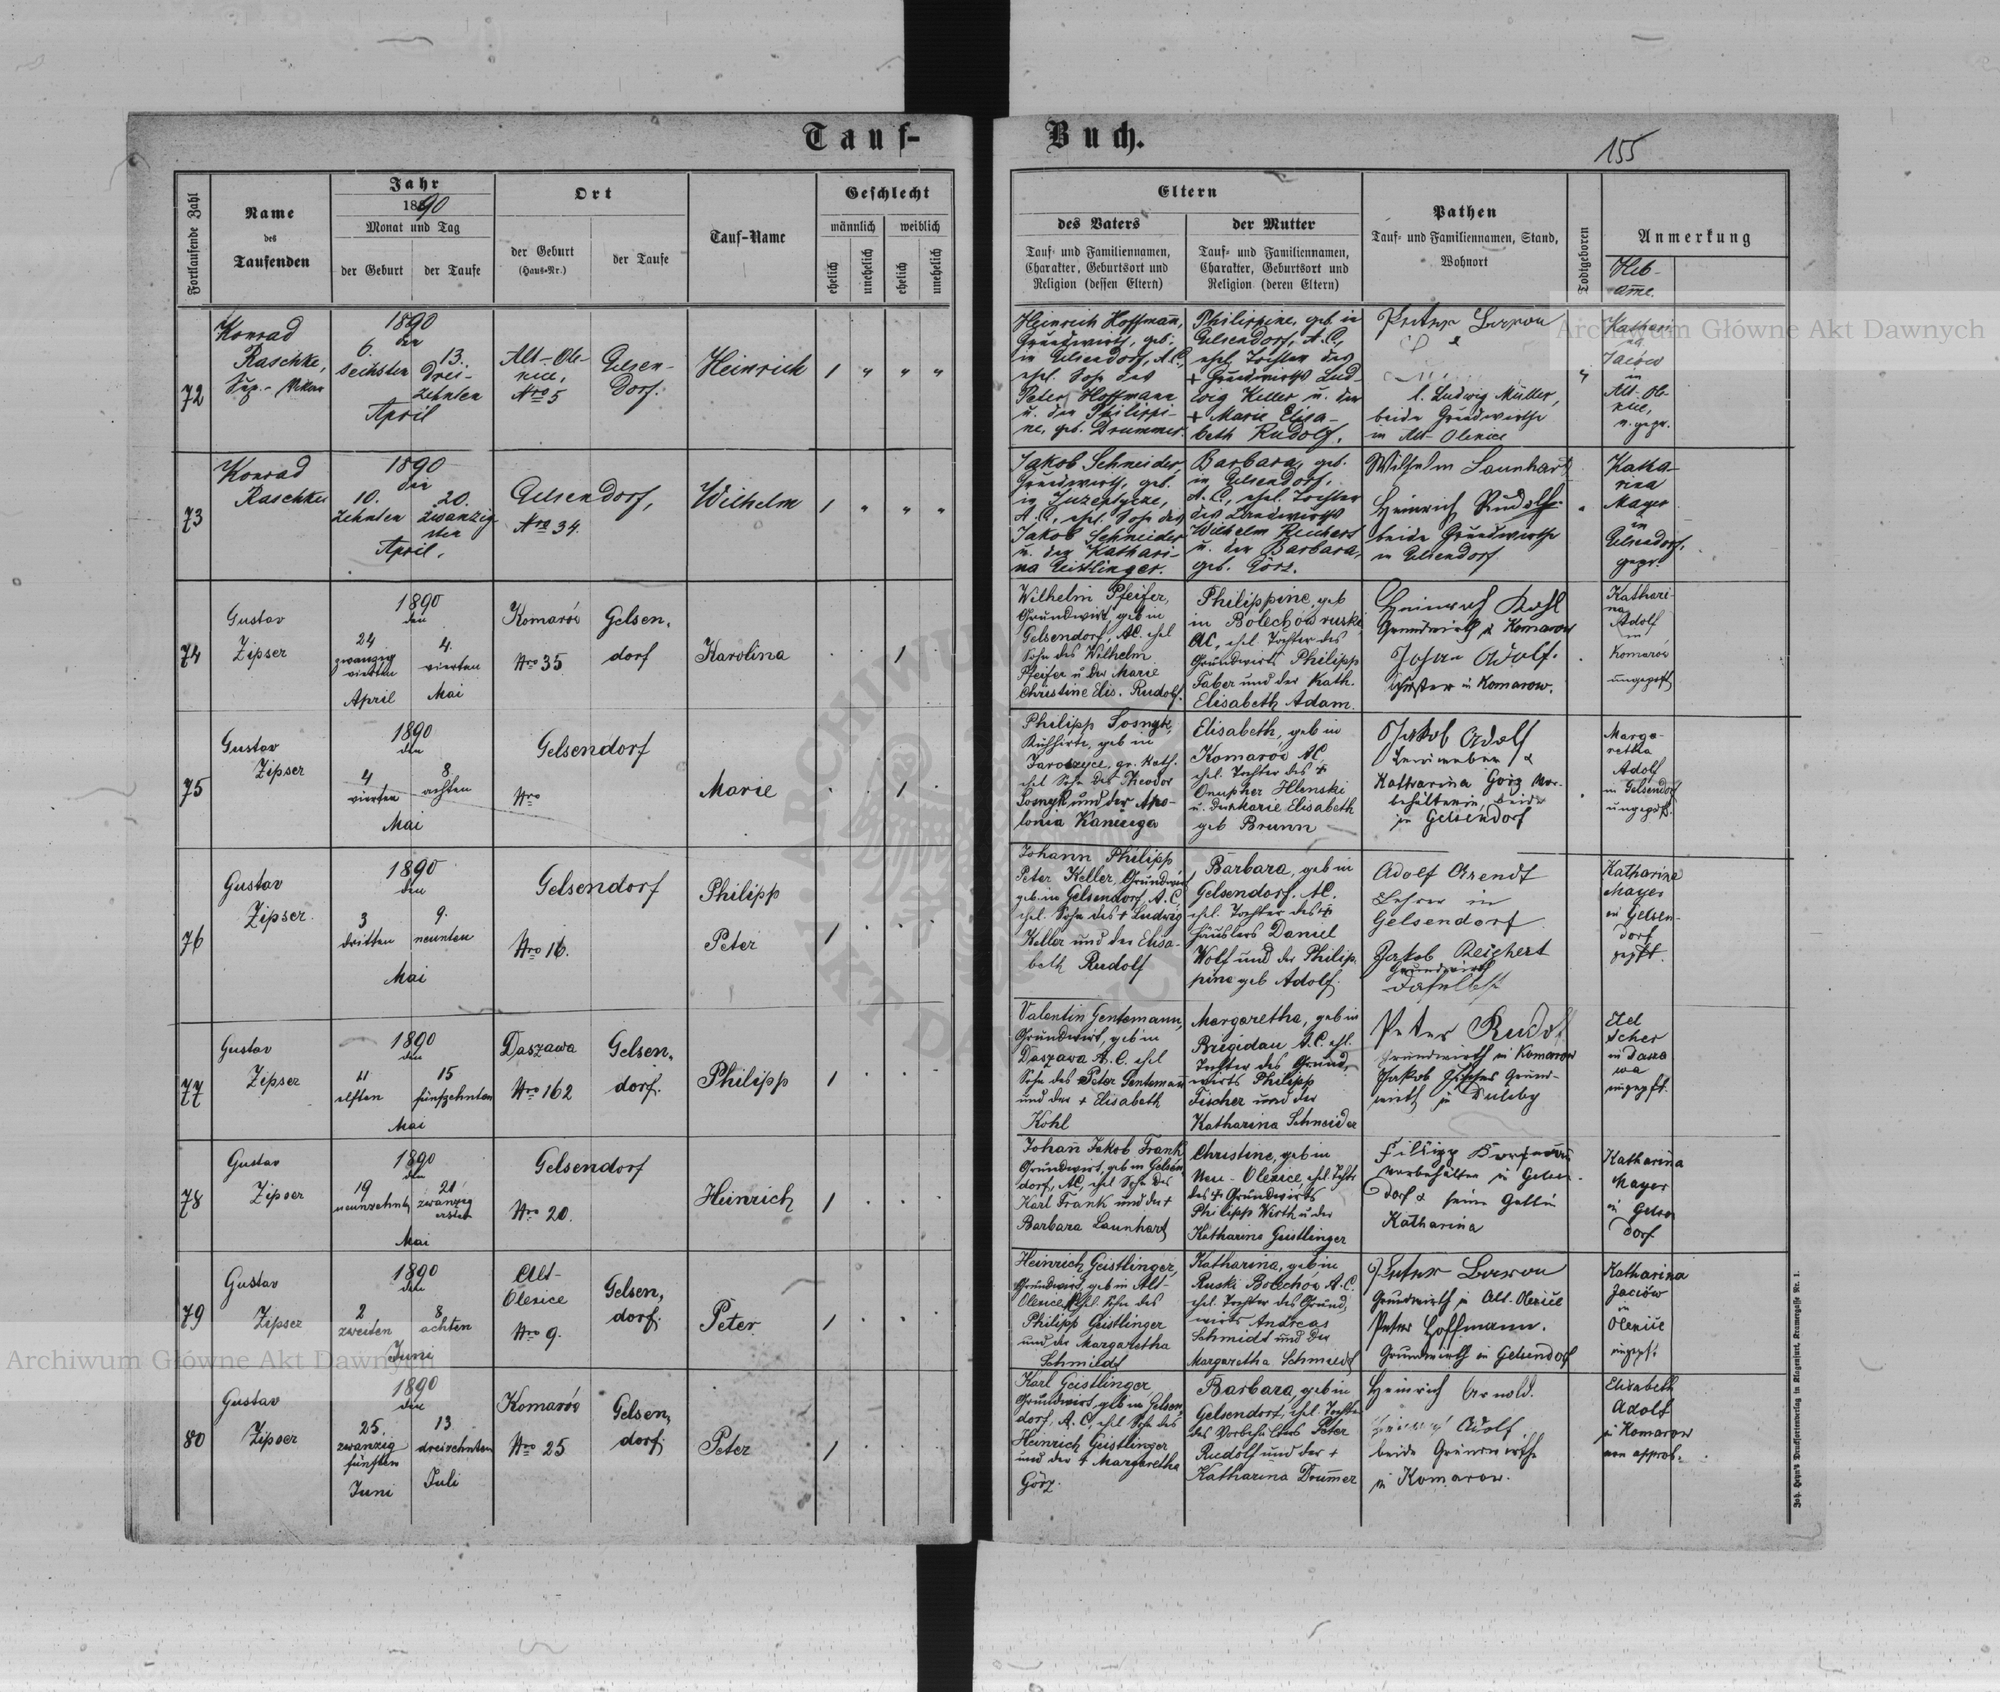 Tauf-
Buch.
155
Fortlaufende Zahl
Name
des
Taufenden
Jahr
1890
Monat und Tag
der Geburt
der Taufe
Ort
der Geburt
(Haus-Nr.)
der Taufe
Tauf-Name
Geschlecht
männlich
weiblich
ehelich
unehelich
ehelich
unehelich
Eltern
des Vaters
Tauf- und Familiennamen,
Charakter, Geburtsort und
Religion (dessen Eltern)
der Mutter
Tauf- und Familiennamen,
Charakter, Geburtsort und
Religion (deren Eltern)
Pathen
Tauf- und Familiennamen, Stand,
Wohnort
Todtgeboren
Anmerkung
Heb-
ame.
72
Konrad
Raschke,
Sup.- Vikar
1890
den
6.
sechsten
13.
drei-
zehnten
April
Alt-Ole-
nice,
Nro 5
Gelsen-
dorf.
Heinrich
1 " " "
Heinrich Hoffmann,
Grundwirth, geb.
in Gelsendorf, A.C.,
ehel. Sohn des
Peter Hoffmann
u. der Philippi-
ne, geb. Drummer.
Philippine, geb. in
Gelsendorf, A.C.,
ehel. Tochter des
+ Grundwirths Lud-
wig Keller u. der
+ Marie Elisa-
beth Rudolf.
Peter
Ludwig Müller,
beide Grundwirthe
in Alt-Olenice
Kathari-
na
Jaciów
in
Alt-Ole-
nice,
n. gepr.
73
Konrad
Raschke
1890
den
10.
zehnten
20.
zwanzig
sten
April.
Gelsendorf,
Nro 34.
Wilhelm
1 " " "
Jakob Schneider,
Grundwirth, geb.
in
A.C., ehel. Sohn des
Jakob Schneider
u. der Kathari-
na Geistlinger.
Barbara, geb.
in Gelsendorf,
A.C., ehel. Tochter
des Grundwirths
Wilhelm Reichert
u. der Barbara,
geb. Görz.
Wilhelm Launhart
Heinrich Rudolf
beide Grundwirthe
in Gelsendorf
Katha-
rina
Mayer
in
Gelsendorf,
gepr.
74
Gustav
Zipser
1890
den
24
zwanzig
vierten
April
4.
vierten
Mai
Komarów
Nro 35
Gelsen,
dorf
Karolina
1
Wilhelm Pfeifer,
Grundwirt, geb in
Gelsendorf, AC. ehel
Sohn des Wilhelm
Pfeifer u der Marie
Christine Elis. Rudolf.
Philippine, geb
in Bolechów ruski
AC, ehel. Tochter des
Grundwirts Philipp
Faber und der Kath.
Elisabeth Adam.
Heinrich Kohl
Grundwirth in Komarow
Johan Adolf.
in Komarow.
Kathari-
na
Adolf
in
Komarów
ungeprft
75
Gustav
Zipser
1890
den
4
vierten
8
achten
Mai
Gelsendorf
Nro
Marie
1
Philipp Sosnyk,
Kuhhirte, geb in
gr. kath.
ehel Sohn des Theodor
Sosnyk und der Apo-
lonia
Elisabeth, geb in
Komarów AC
ehel. Tochter des +
Onupher Hlenski
u. der Marie Elisabeth
geb Brunn
Jakob Adolf
Katharina Görz Vor-
behälterin, beide
in Gelsendorf
Marga-
retha
Adolf
in Gelsendorf
ungeprft.
76
Gustav
Zipser.
1890
den
3
dritten
9.
neunten
Mai
Gelsendorf
Nro 16.
Philipp
Peter
1
Johann Philipp
Peter Keller, Grundwirt
geb in Gelsendorf, A.C.
ehel. Sohn des + Ludwig
Keller und der Elisa-
beth Rudolf
Barbara, geb in
Gelsendorf. AC.
ehel. Tochter des +
Häuslers Daniel
Wolf und der Philip,
pine geb Adolf.
Adolf Arendt
Lehrer in
Gelsendorf
Jakob Reichert
Grundwirth
daselbst
Katharina
Mayer
in Gelsen-
dorf
geprft.
77
Gustav
Zipser
1890
den
11
elften
15
fünfzehnten
Mai
Daszawa
Nro 162
Gelsen,
dorf.
Philipp
1
Valentin Gentemann,
Grundwirt, geb in
Daszawa A.C. ehel
Sohn des Peter Gentemann
und der + Elisabeth
Kohl
Margaretha, geb in
Brigidau A.C. ehl.
Tochter des Grund,
wirts Philipp
Fischer und der
Katharina Schneider
Peter Rudolf
Grundwirth in Komarow
Jakob Fischer Grund-
wirth in
in Dasza
wa
ungeprft.
78
Gustav
Zipser
1890
den
19
neunzehnten
21
zwanzig
ersten
Mai
Gelsendorf
Nro 20.
Heinrich
1
Johann Jakob Frank
Grundwirt, geb in Gelsen
dorf, AC, ehel Sohn des
Karl Frank und der +
Barbara Launhart
Christine, geb in
Neu-Olexice, ehl. Tochter
des + Grundwirts
Philipp Wirth u der
Katharina Geistlinger
Filipp
Vorbehälter in Gelsen-
dorf & seine Gattin
Katharina
Katharina
Mayer
in Gelsen
dorf
79
Gustav
Zipser
1890
den
2
zweiten
8
achten
Juni
Alt-
Olexice
Nro 9.
Gelsen,
dorf.
Peter
1
Heinrich Geistlinger,
Grundwirt, geb in Alt-
Olexice, ehel. Sohn des
Philipp Geistlinger
und der Margaretha
Schmidt
Katharina, geb in
Ruski Bolechów A.C.
ehel. Tochter des Grund,
wirts Andreas
Schmidt und der
Margaretha Schmidt
Peter
Grundwirth in Alt-Olexice
Peter Hoffmann.
Grundwirth in Gelsendorf
Katharina
Jaciów
in
Olexice
ungeprft.
80
Gustav
Zipser
1890
den
25.
zwanzig
fünften
Juni
13
dreizehnten
Juli
Komarów
Nro 25
Gelsen,
dorf
Peter
1
Karl Geistlinger
Grundwirt, geb in Gelsen,
dorf, A.C, ehel Sohn des
Heinrich Geistlinger
und der + Margaretha
Görz.
Barbara, geb in
Gelsendorf, ehel. Tochter
des Vorbehälters Peter
Rudolf und der +
Katharina Drummer
Heinrich Arnold.
Adolf
beide Grundwirthe
in Komarow.
Elisabeth
Adolf
in Komarow
non approb.
Joh. Heyn's Drucksortenverlag in Klagenfurt, Kramergasse Nr. 1.
Archiwum Główne Akt Dawnych
Archiwum Główne Akt Dawnych